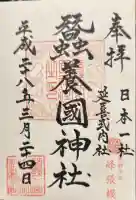 奉拝
日本一社
延喜式内社
蠶養國神社
平成二十八年三月二十四日